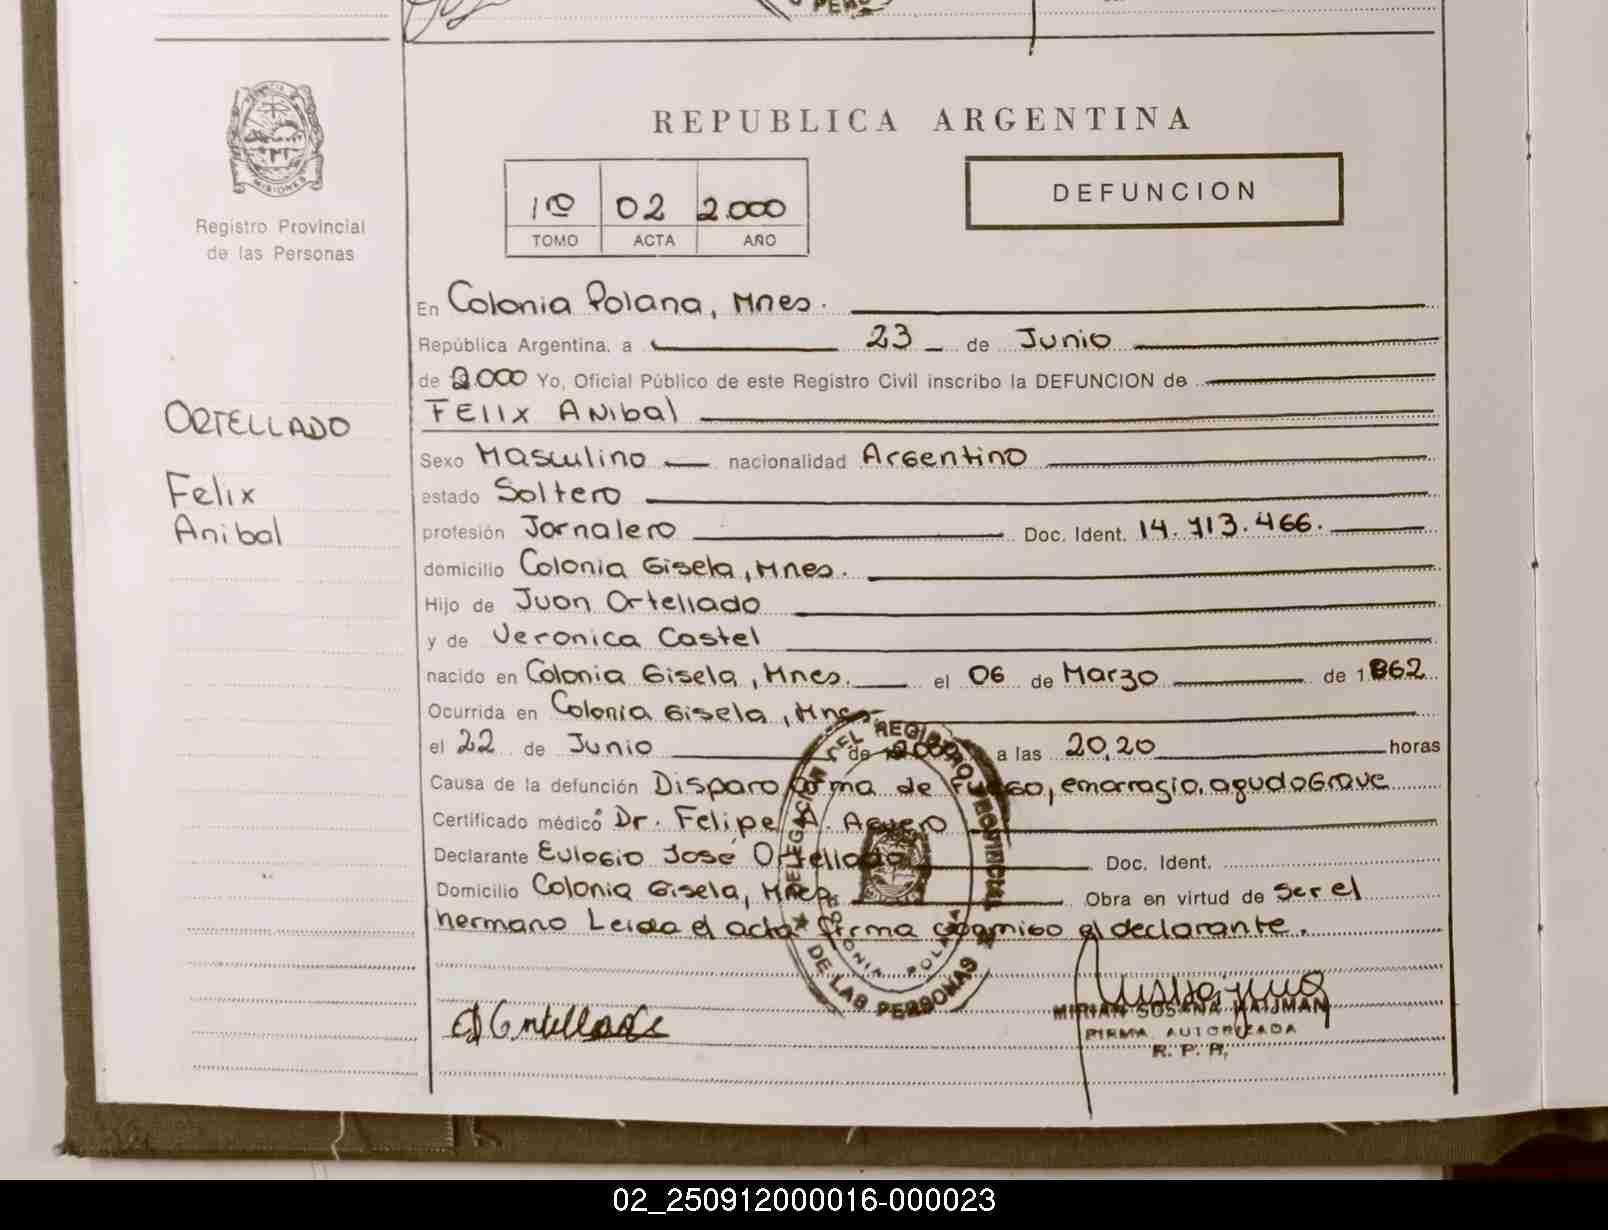 REPUBLICA ARGENTINA
MISIONES
Registro Provincial
de las Personas
1ro 02 2.000
TOMO ACTA AÑO
DEFUNCION
ORTELLADO
Felix
Anibal
En Colonia Polana, Mnes.
República Argentina, a 23 de Junio
de 2.000 Yo, Oficial Público de este Registro Civil inscribo la DEFUNCION de
FElIx ANibal
Sexo Masculino nacionalidad Argentino
estado Soltero
profesión Jornalero Doc. Ident. 14.713.466.
domicilio Colonia Gisela, Mnes.
Hijo de Juan Ortellado
y de Veronica Castel
nacido en Colonia Gisela, Mnes. el 06 de Marzo de 1962
Ocurrida en Colonia Gisela, Mnes
el 22 de Junio de 2000 a las 20,20 horas
Causa de la defunción Disparo arma de Fuego, emorragia, agudo Grave
Certificado médico Dr. Felipe A. Aguero
Declarante Eulogio José Ortellado Doc. Ident.
Domicilio Colonia Gisela, Mnes. Obra en virtud de ser el
hermano Leida el acta firma conmigo el declarante.
DELEGACION DEL REGISTRO PROVINCIAL
DE LAS PERSONAS
COLONIA POLANA
MIRIAN SUSANA
FIRMA AUTORIZADA
R. P. P.
02_250912000016-000023